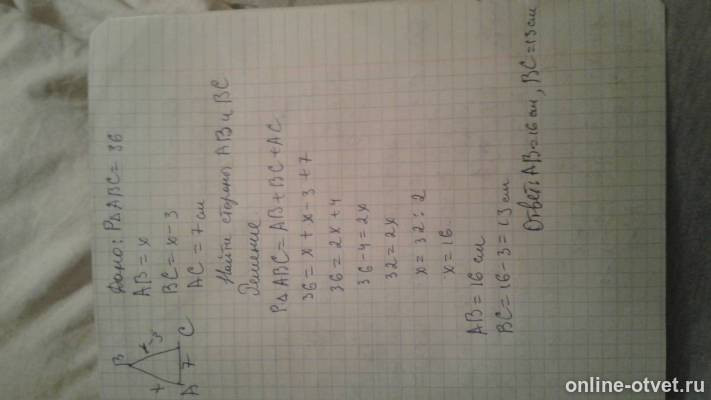 B
x
x-3
A 7 C
Дано: P∆ABC = 36
AB = x
BC = x-3
AC = 7 см
Найти стороны AB и BC
Решение
P∆ABC = AB + BC + AC
36 = x + x - 3 + 7
36 = 2x + 4
36 - 4 = 2x
32 = 2x
x = 32 : 2
x = 16
AB = 16 см
BC = 16 - 3 = 13 см
Ответ: AB = 16 см, BC = 13 см
online-otvet.ru